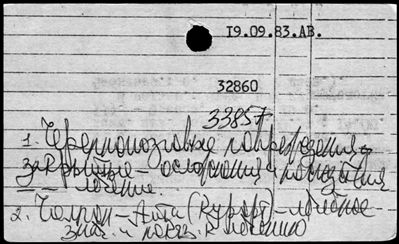 19.09.83.АВ.
32860
33857
1. Черепномозговые повреждения
закрытые - осложнения и последствия
- лечение.
2. Чолпон-Ата (Курорт) - лечебное
знач. и показ. к лечению